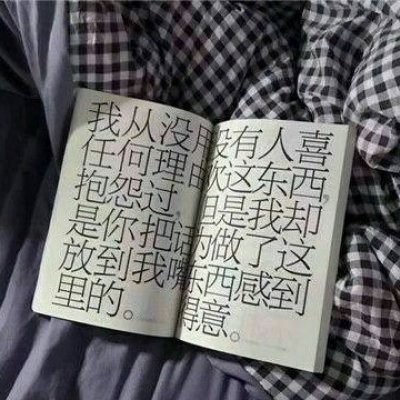 我从没用
任何理由
抱怨过，
是你把话
放到我嘴
里的。
没有人喜
欢这东西，
但是我却
为做了这
东西感到
得意。